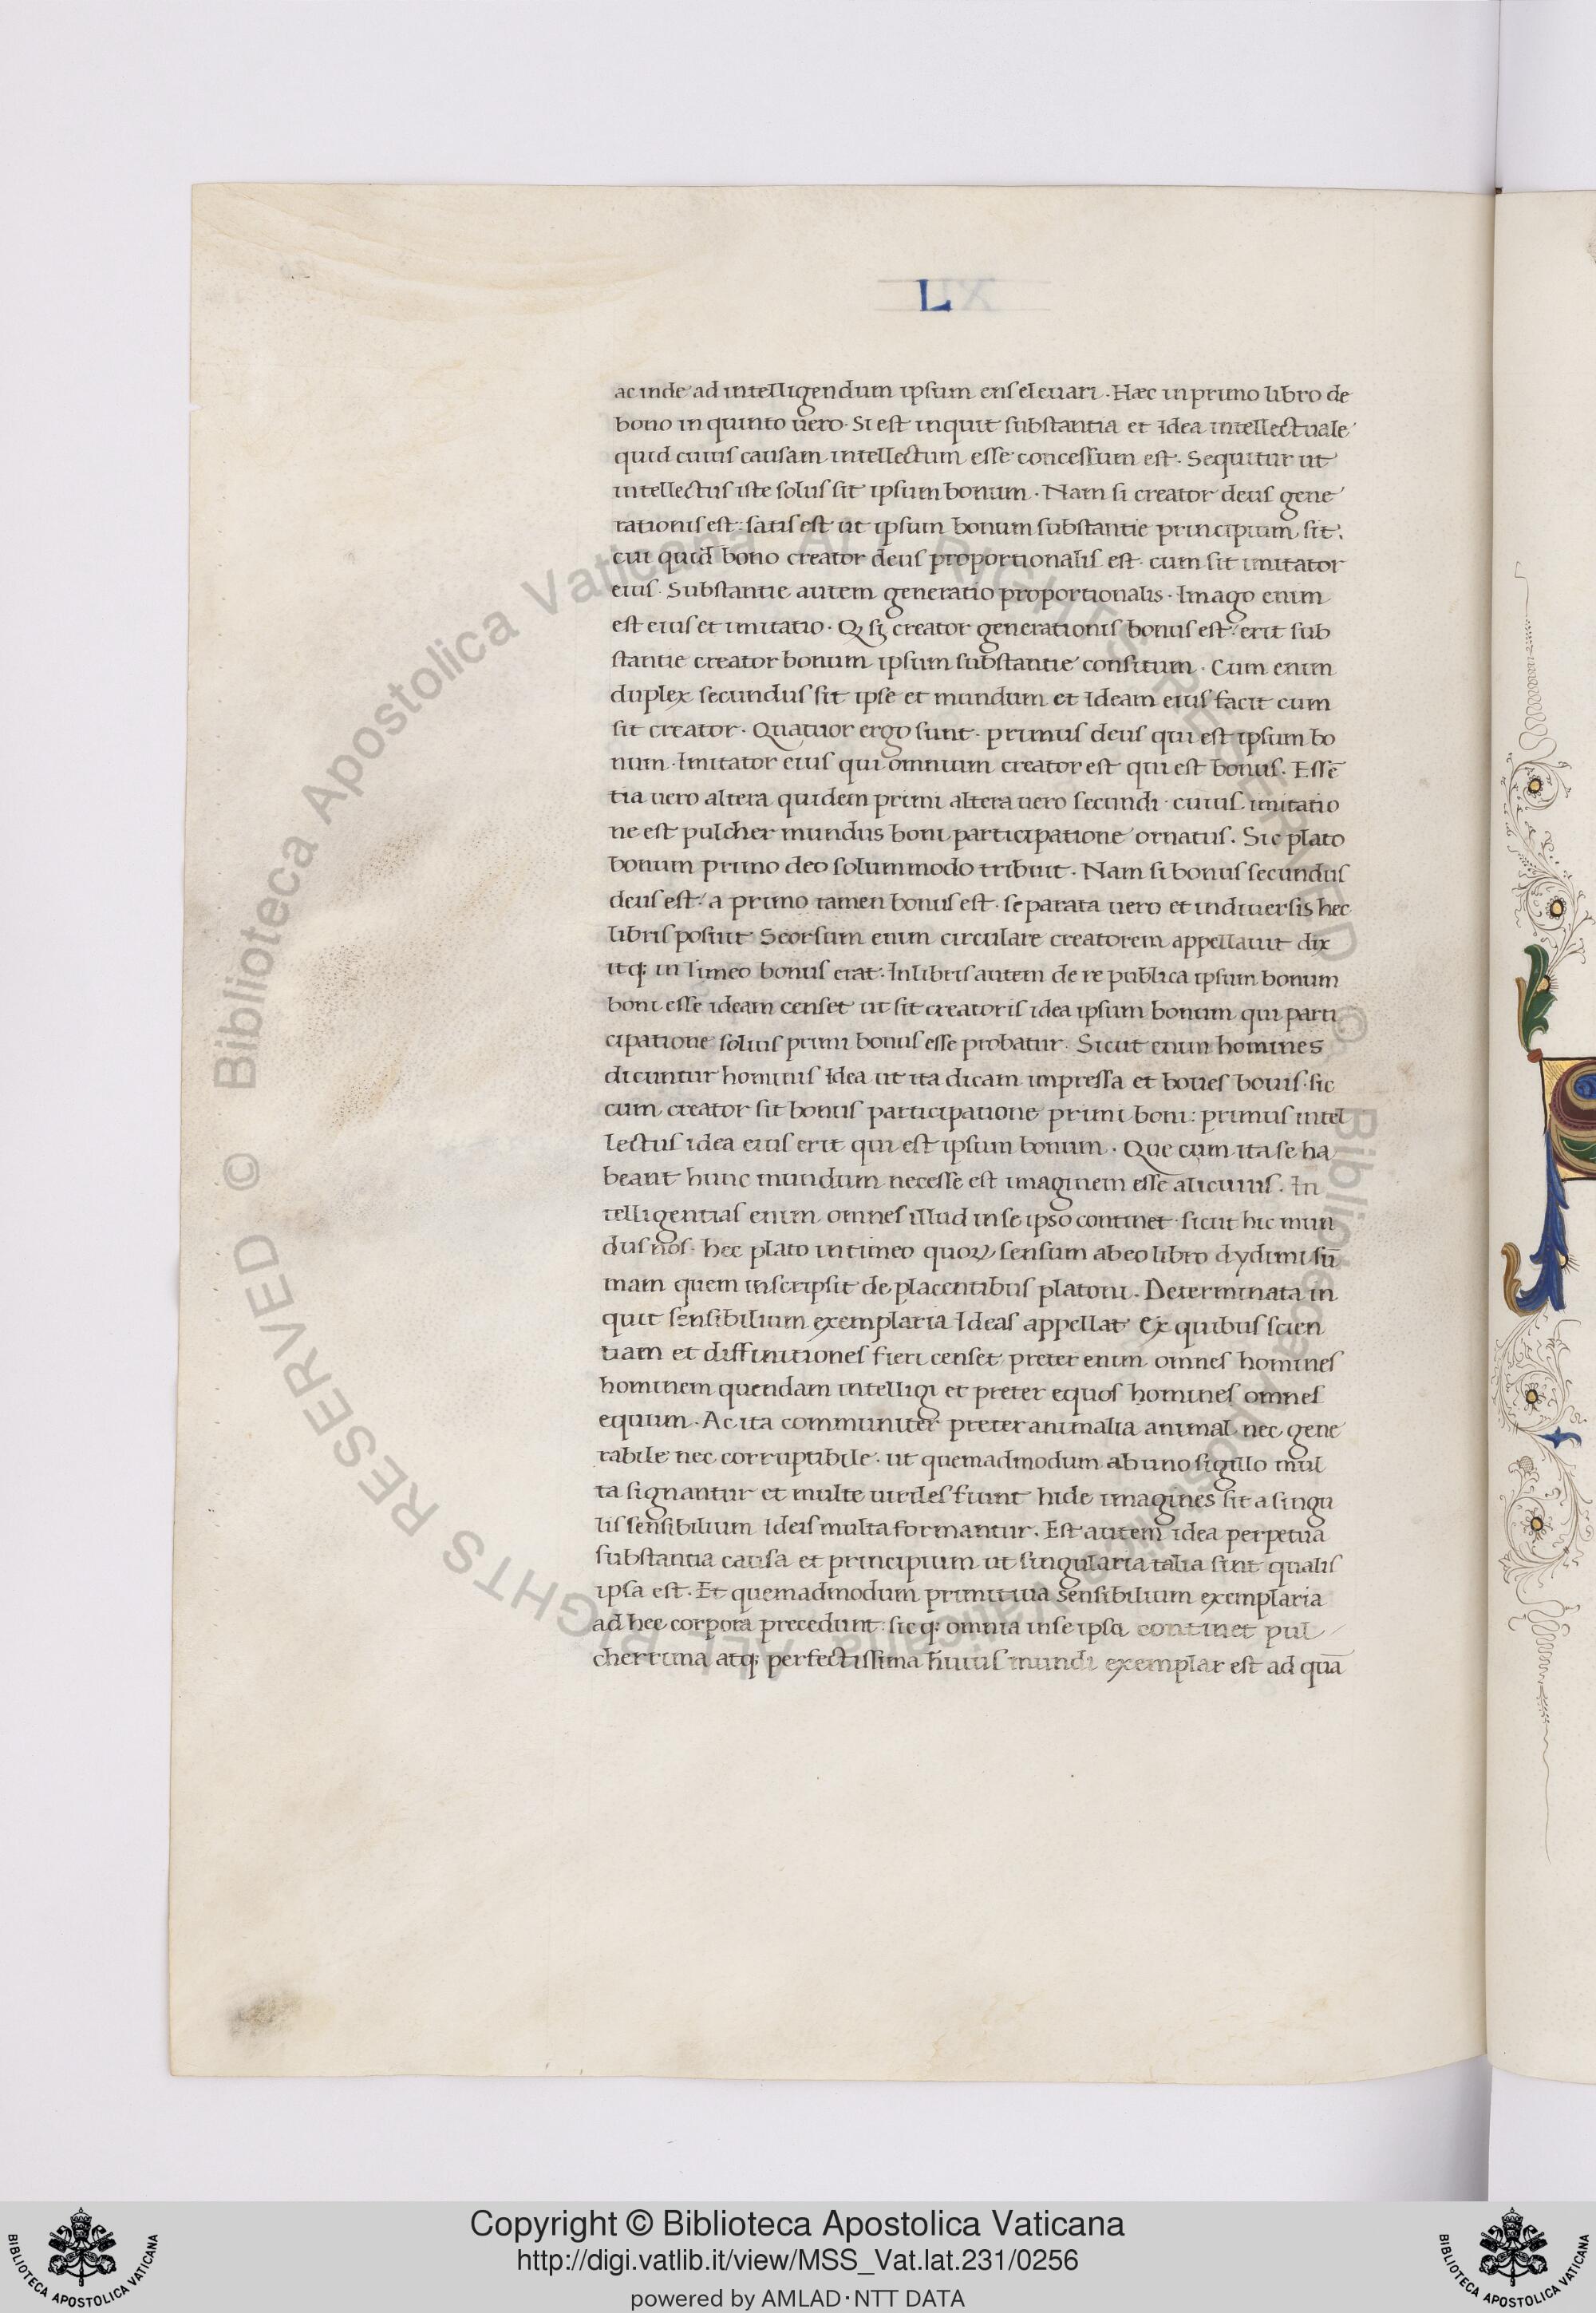 L
ac inde ad intelligendum ipsum ens elevari. Hæc in primo libro de
bono in quinto uero. Si est inquit substantia et Idea intellectuale
quid cuius causam intellectum esse concessum est. Sequitur ut
intellectus iste solus sit ipsum bonum. Nam si creator deus gene
rationis est: satis est ut ipsum bonum substantie principium sit:
cui quid bono creator deus proportionalis est. cum sit imitator
eius. Substantie autem generatio proportionalis. Imago enim
est eius et imitatio. Q si creator generationis bonus est: erit sub
stantie creator bonum ipsum substantie consitum. Cum enim
duplex secundus sit ipse et mundum et Ideam eius facit cum
sit creator. Quatuor ergo sunt. primus deus qui est ipsum bo
num. Imitator eius qui omnium creator est qui est bonus. Essē
tia uero altera quidem primi altera uero secundi. cuius imitatio
ne est pulcher mundus boni participatione ornatus. Sic plato
bonum primo deo solummodo tribuit. Nam si bonus secundus
deus est: a primo tamen bonus est. separata uero et in diuersis hec
libris posuit Seorsum enim circulare creatorem appellauit dix
itq; in Timeo bonus erat. In libris autem de re publica ipsum bonum
boni esse ideam censet ut sit creatoris idea ipsum bonum qui parti
cipatione solius primi bonus esse probatur. Sicut enim homines
dicuntur hominis Idea ut ita dicam impressa et boues bouis. sic
cum creator sit bonus participatione primi boni: primus intel
lectus idea eius erit qui est ipsum bonum. Que cum ita se ha
beant hunc mundum necesse est imaginem esse alicuius. In
telligentias enim omnes illud in se ipso continet sicut hic mun
dus nos. hec plato in timeo quoꝝ sensum ab eo libro dydimi sū
mam quem inscripsit de placentibus platoni. Determinata in
quit sensibilium exemplaria Ideas appellat Ex quibus scien
tiam et diffinitiones fieri censet preter enim omnes homines
hominem quendam intelligi et preter equos homines omnes
equum. Ac ita communiter preter animalia animal nec gene
rabile nec corruptibile. ut quemadmodum ab uno sigillo mul
ta signantur et multe uirdes fiunt hide imagines sit a singu
lis sensibilium Ideis multa formantur. Est autem idea perpetua
substantia causa et principium ut singularia talia sint qualis
ipsa est. Et quemadmodum primitiua sensibilium exemplaria
ad hec corpora precedunt: sicq; omnia in se ipsa continet pul
cherrima atq; perfectissima huius mundi exemplar est ad quā
© Biblioteca Apostolica Vaticana ALL RIGHTS RESERVED
© Biblioteca Apostolica Vaticana ALL RIGHTS RESERVED
Copyright © Biblioteca Apostolica Vaticana
http://digi.vatlib.it/view/MSS_Vat.lat.231/0256
powered by AMLAD·NTT DATA
BIBLIOTECA APOSTOLICA VATICANA
BIBLIOTECA APOSTOLICA VATICANA